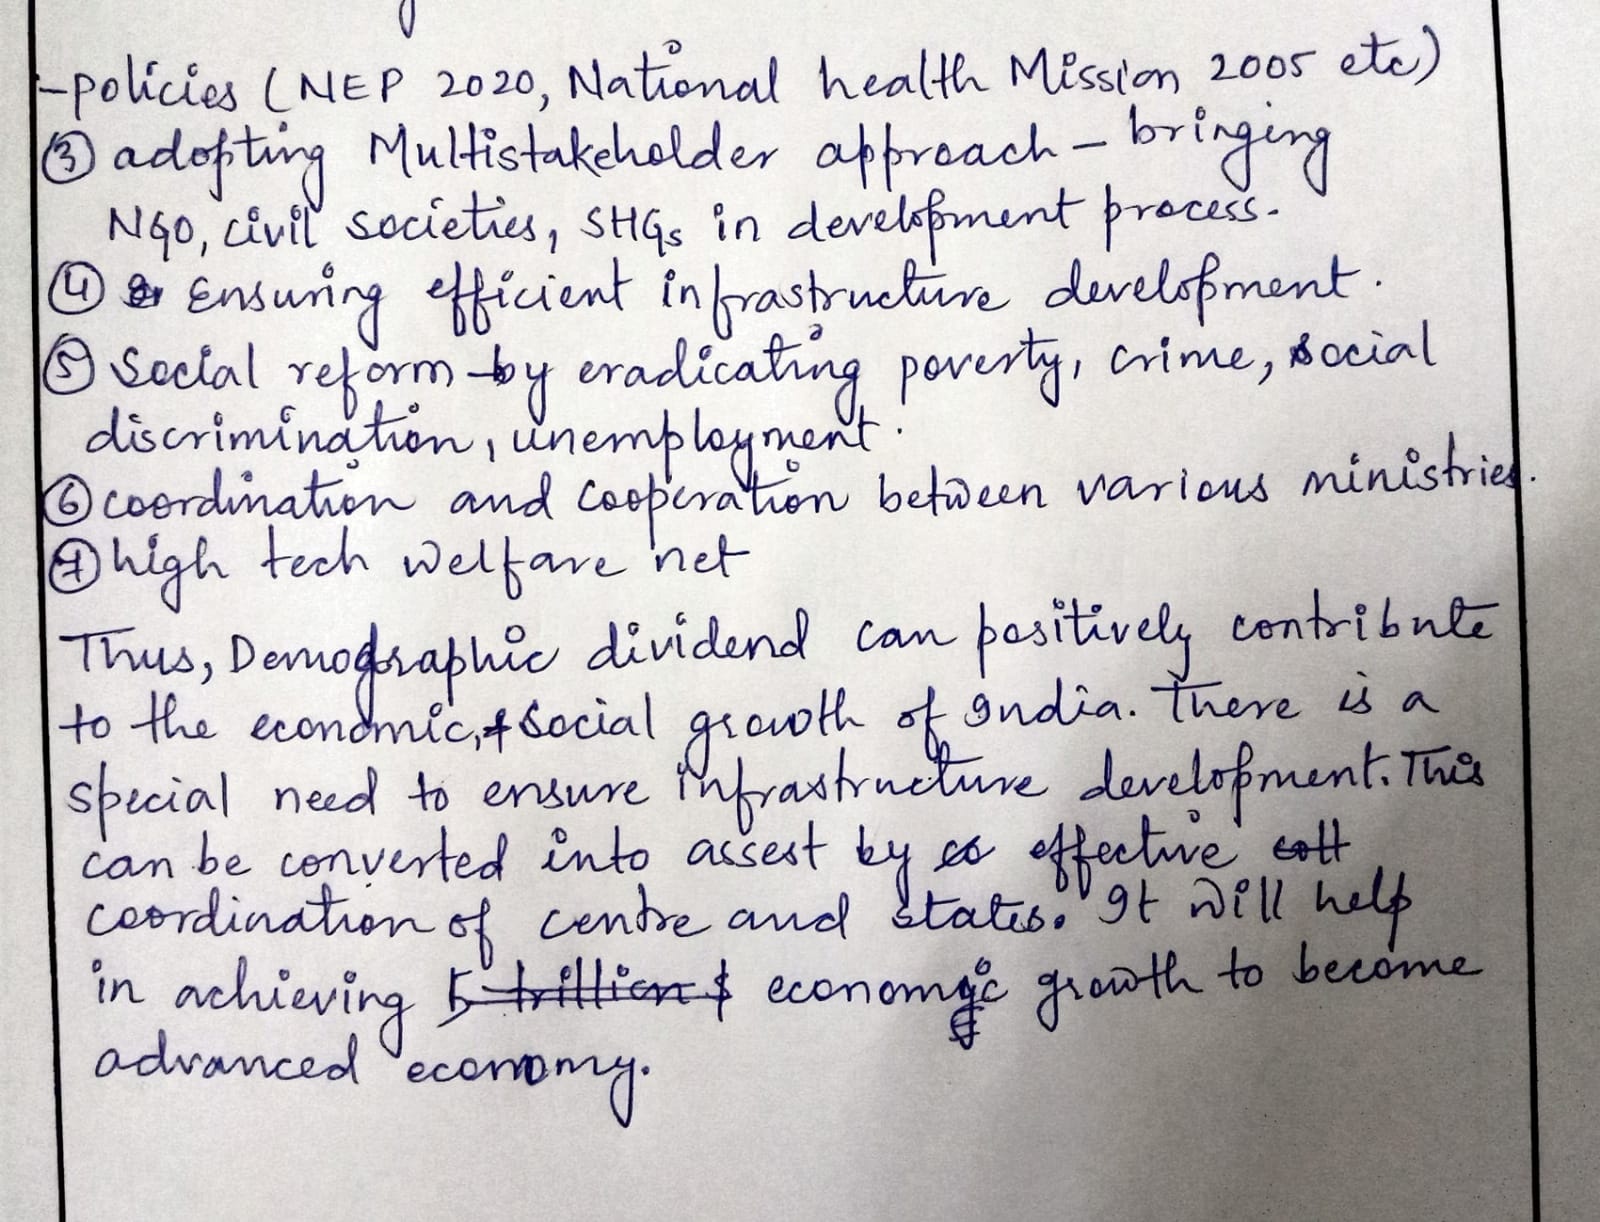 -policies (NEP 2020, National health Mission 2005 etc)
③ adopting Multistakeholder approach - bringing
NGO, civil societies, SHGs in development process.
④ Ensuring efficient infrastructure development.
⑤ Social reform by eradicating poverty, crime, social
discrimination, unemployment.
⑥ coordination and cooperation between various ministries.
⑦ high tech welfare net
Thus, Demographic dividend can positively contribute
to the economic, & social growth of India. There is a
special need to ensure infrastructure development. This
can be converted into assest by effective
coordination of centre and states. It will help
in achieving 5 trillion $ economic growth to become
advanced economy.